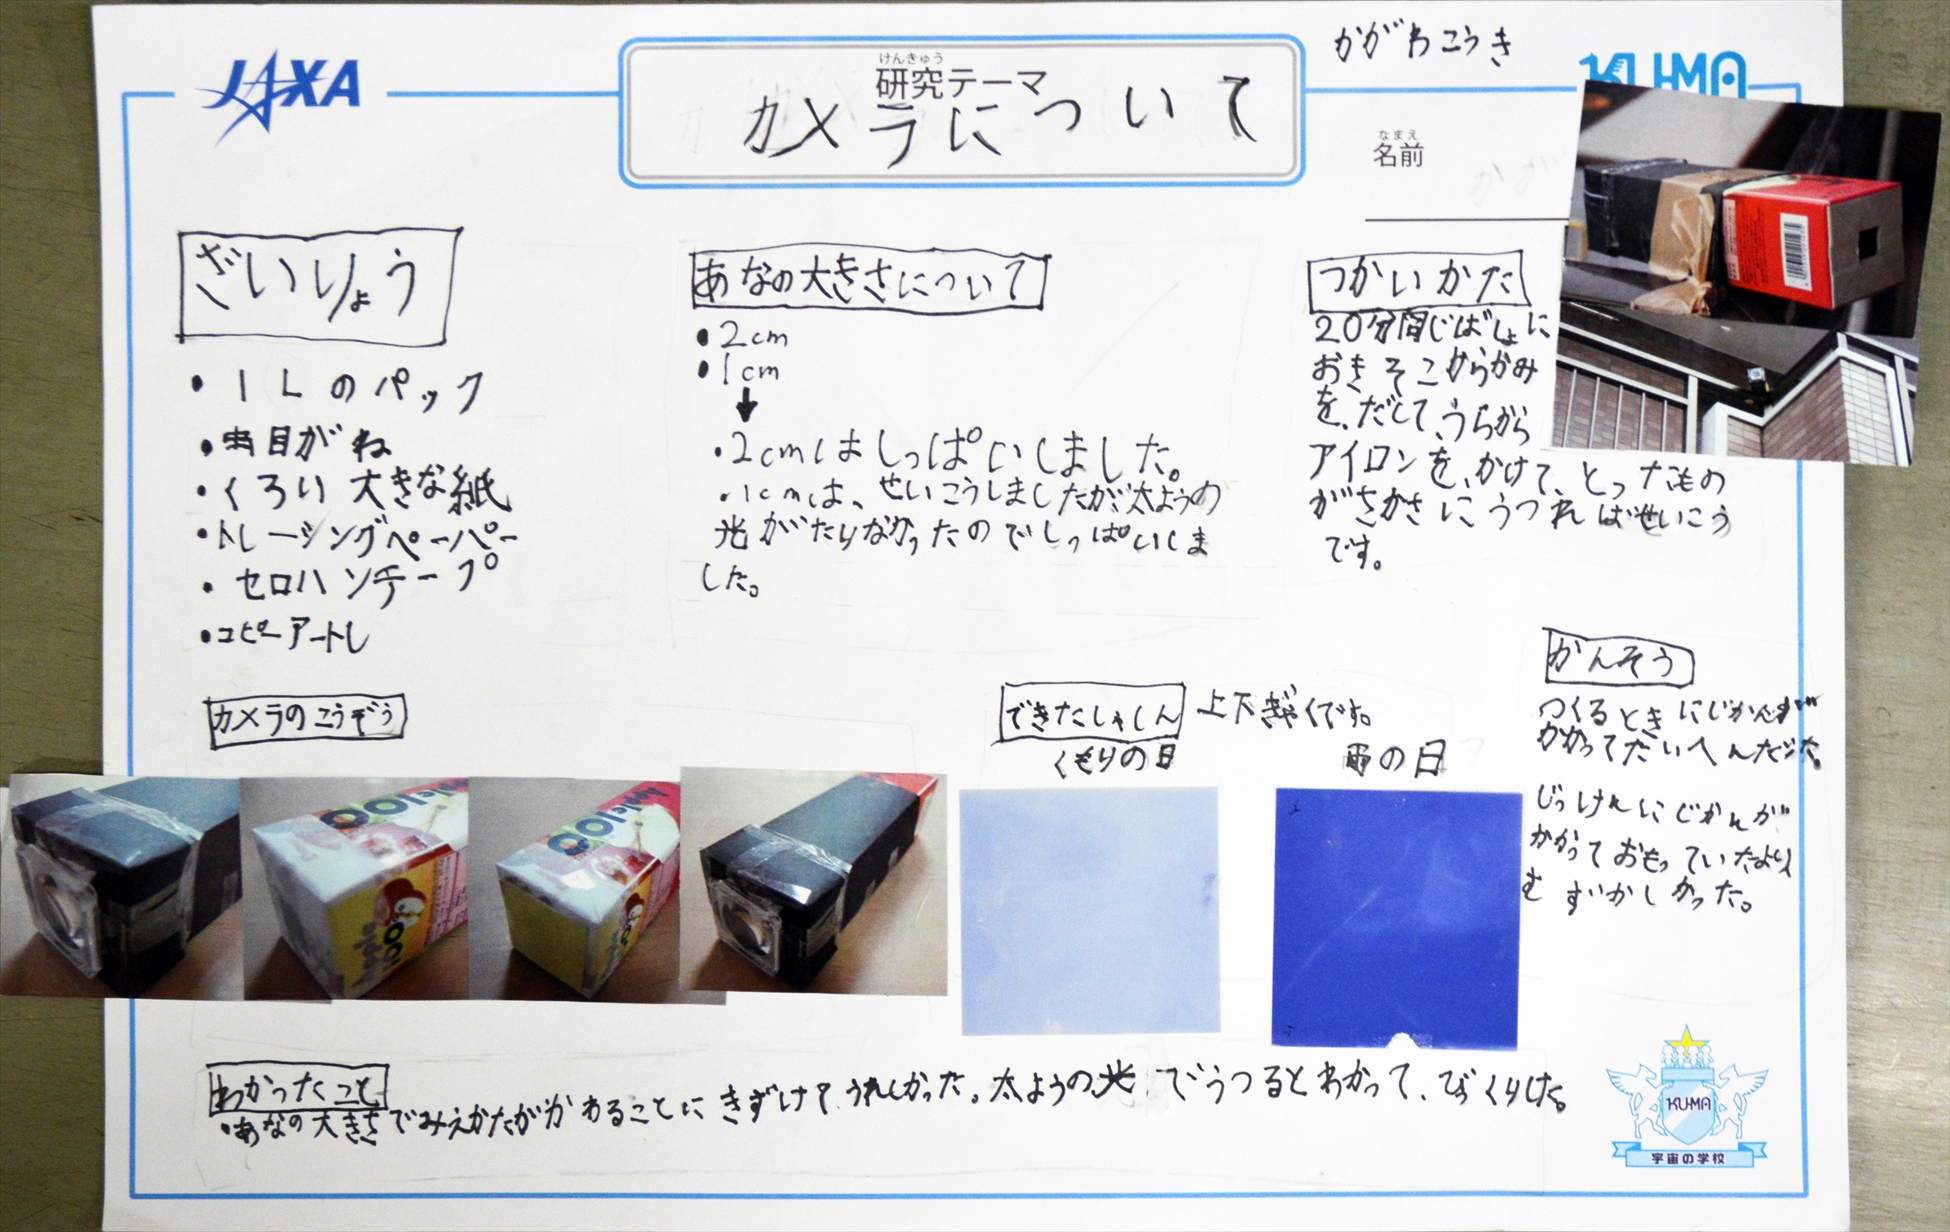 JAXA
けんきゅう
研究テーマ
カメラについて
かがわこうき
KUMA
なまえ
名前
ざいりょう
・1Lのパック
・虫目がね
・くろい大きな紙
・トレーシングペーパー
・セロハンテープ
・コピーアートし
あなの大きさについて
・2cm
・1cm
↓
・2cmはしっぱいしました。
・1cmは、せいこうしましたが太ようの
光がたりなかったのでしっぱいしま
した。
つかいかた
20分間じばしょに
おきそこからかみ
を、だして、うらから
アイロンを、かけて、とったもの
がさかさにうつればせいこう
です。
カメラのこうぞう
できたしゃしん 上下ぎゃくです。
くもりの日
雨の日
かんそう
つくるときにじかんが
かかってたいへんだった。
じっけんにじかんが
かかっておもっていたより
むずかしかった。
Apple
100
Apple
100
Apple
100
わかったこと
・あなの大きさでみえかたがかわることにきずけて、うれしかった。太ようの光、でうつるとわかって、びっくりした。
KU-MA
宇宙の学校